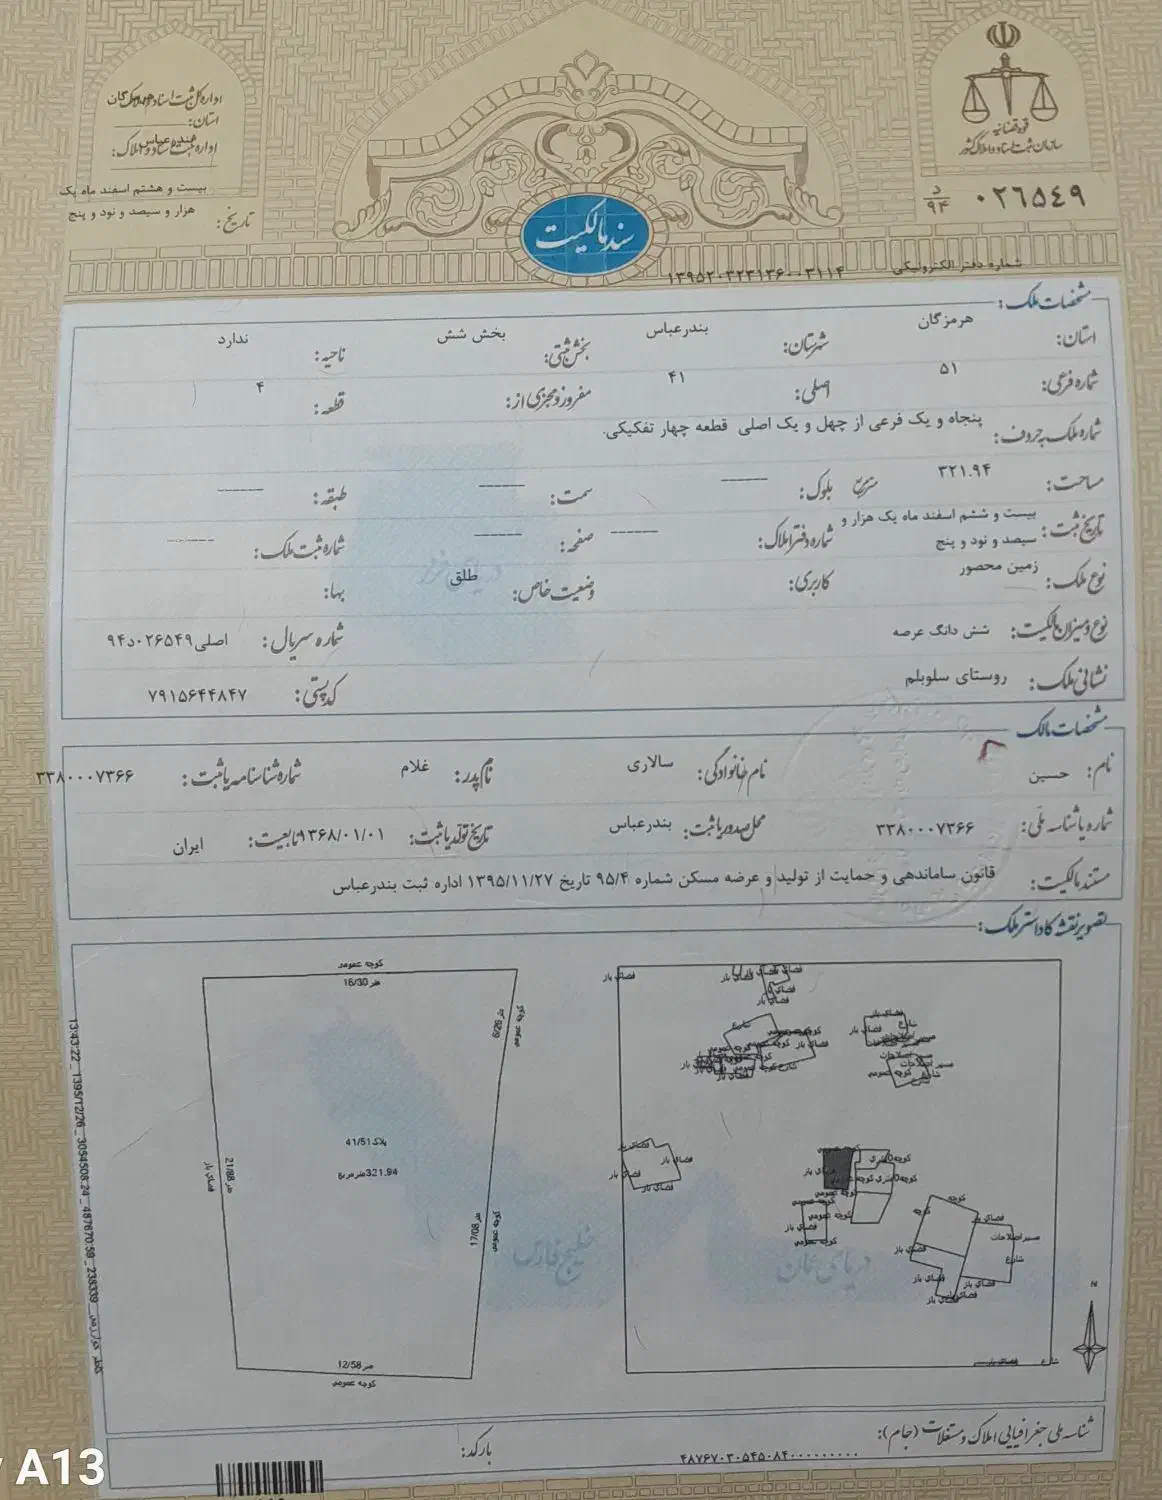 قوه قضائیه
سازمان ثبت اسناد و املاک کشور
۰۲۶۵۴۹ د/۹۴
اداره کل ثبت اسناد و املاک
استان: هرمزگان
اداره ثبت اسناد و املاک: بندرعباس
تاریخ: بیست و هشتم اسفند ماه یک هزار و سیصد و نود و پنج
سند مالکیت
شماره دفتر الکترونیکی ۱۳۹۵۲۰۳۲۳۱۳۶۰۰۳۱۱۴
مشخصات ملک:
استان: هرمزگان شهرستان: بندرعباس بخش ثبتی: بخش شش ناحیه: ندارد
شماره فرعی: ۵۱ اصلی: ۴۱ مفروز و مجزی از: قطعه: ۴
شماره ملک به حروف: پنجاه و یک فرعی از چهل و یک اصلی قطعه چهار تفکیکی.
مساحت: ۳۲۱.۹۴ مترمربع بلوک: ------ سمت: ------ طبقه: ------
تاریخ ثبت: بیست و ششم اسفند ماه یک هزار و سیصد و نود و پنج شماره دفتر املاک: ------ صفحه: ------ شماره ثبت ملک: ------
نوع ملک: زمین محصور کاربری: وضعیت خاص: طلق بها:
نوع و میزان مالکیت: شش دانگ عرصه شماره سریال: اصلی۰۲۶۵۴۹د۹۴
نشانی ملک: روستای سلوبلم کد پستی: ۷۹۱۵۶۴۴۸۴۷
مشخصات مالک
نام: حسین نام خانوادگی: سالاری نام پدر: غلام شماره شناسنامه یا ثبت: ۳۳۸۰۰۰۷۳۶۶
شماره یا شناسه ملی: ۳۳۸۰۰۰۷۳۶۶ محل صدور یا ثبت: بندرعباس تاریخ تولد یا ثبت: ۱۳۶۸/۰۱/۰۱ تابعیت: ایران
مستند مالکیت: قانون ساماندهی و حمایت از تولید و عرضه مسکن شماره ۹۵/۴ تاریخ ۱۳۹۵/۱۱/۲۷ اداره ثبت بندرعباس
تصویر نقشه کاداستر ملک:
کوچه عمومی
16/30 متر
6/26 متر
کوچه عمومی
پلاک 41/51
321.94 مترمربع
21/88 متر
فضای باز
17/08 متر
کوچه عمومی
12/58 متر
کوچه عمومی
13:43:22 _ 1395/12/26 _ 3054508.24 _ 487670.59 _ 238339
فضای باز
شارع
کوچه عمومی
مسیر اصلاحات
N
دریای خزر
خلیج فارس
دریای عمان
شناسه ملی جغرافیایی املاک و مستغلات (جام): ۴۸۷۶۷۰۳۰۵۴۵۰۸۴۰۰۰۰۰۰۰۰۰
بارکد:
A13